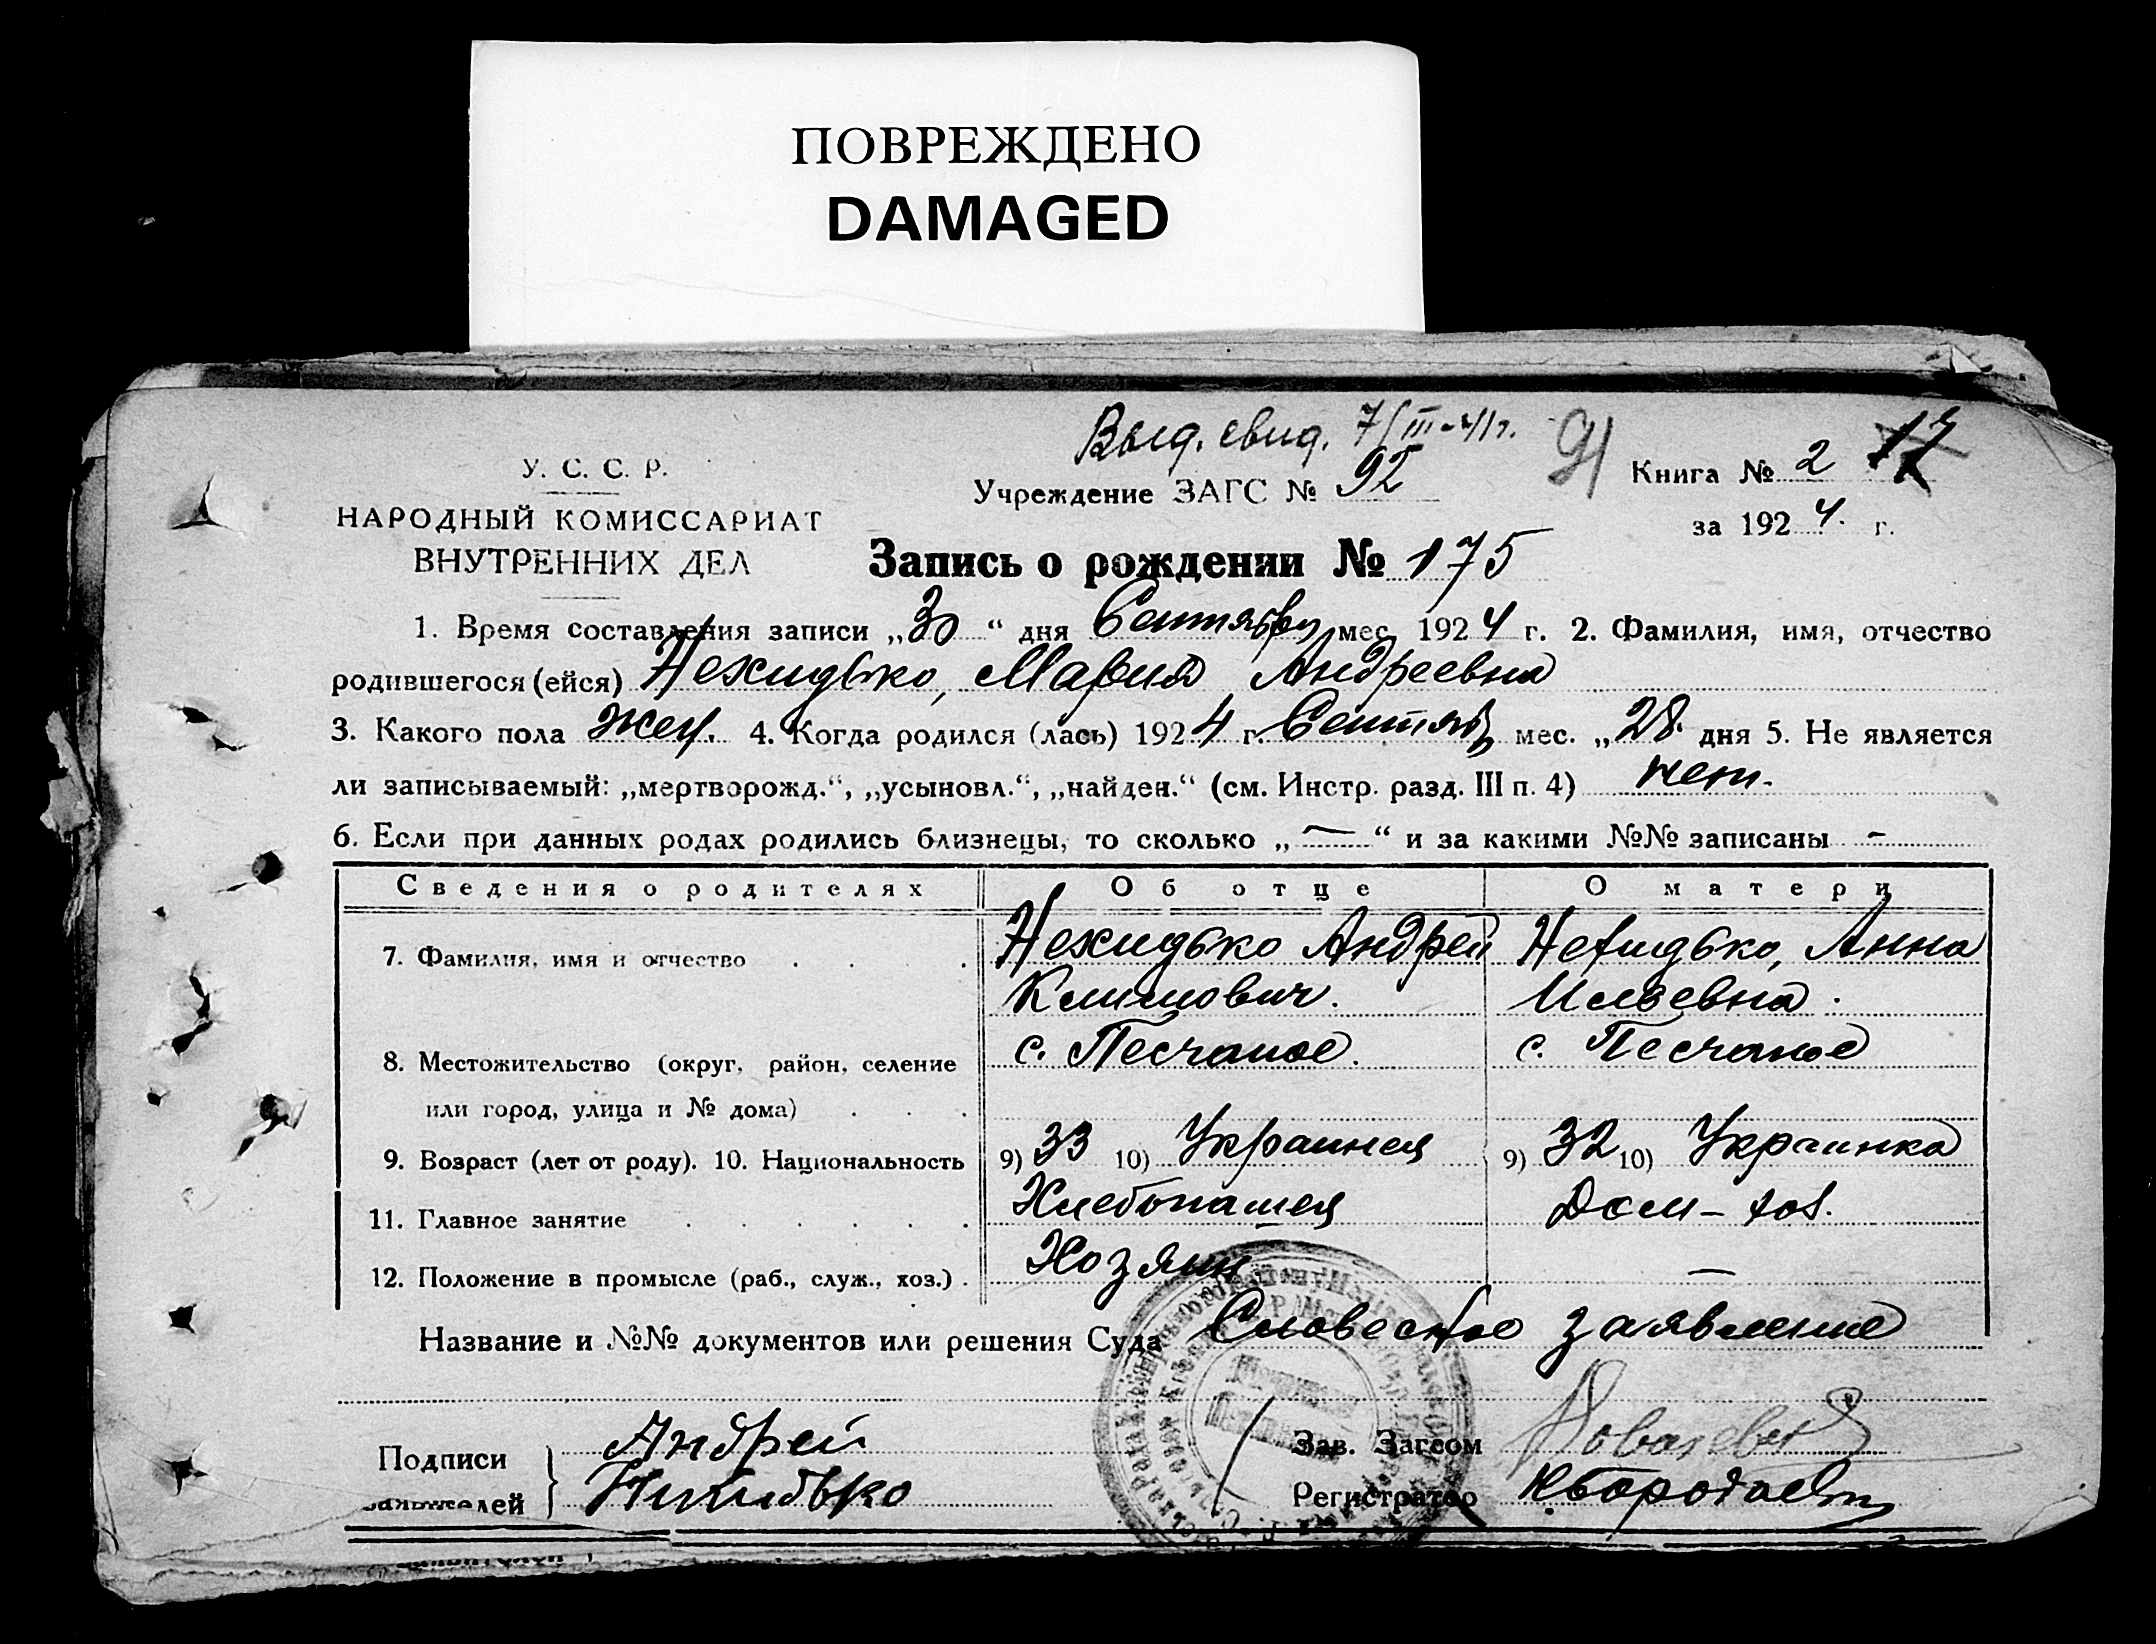 ПОВРЕЖДЕНО
DAMAGED
Выд. свид. 7/III-41г.
91
У. С. С. Р.
НАРОДНЫЙ КОМИССАРИАТ
ВНУТРЕННИХ ДЕЛ
Учреждение ЗАГС № 92
Книга № 2
за 1924. г.
Запись о рождении № 175
1. Время составления записи „30“ дня Сентября мес. 1924 г. 2. Фамилия, имя, отчество
родившегося (ейся) Нехидько, Мария Андреевна
3. Какого пола жен. 4. Когда родился (лась) 1924 г. Сентяб. мес. „28“ дня 5. Не является
ли записываемый: „мертворожд.“, „усыновл.“, „найден.“ (см. Инстр. разд. III п. 4) нет.
6. Если при данных родах родились близнецы, то сколько „—“ и за какими №№ записаны -
Сведения о родителях Об отце О матери
7. Фамилия, имя и отчество Нехидько Андрей Нехидько, Анна
Климович. Ильевна.
8. Местожительство (округ, район, селение с. Песчаное. с. Песчаное
или город, улица и № дома)
9. Возраст (лет от роду). 10. Национальность 9) 33 10) Украинец 9) 32 10) Украинка
11. Главное занятие Хлебопашец Дом-хоз.
12. Положение в промысле (раб., служ., хоз.) Хозяин —
Название и №№ документов или решения Суда Словесное заявление
Подписи Андрей Зав. Загсом
заявителей Регистратор